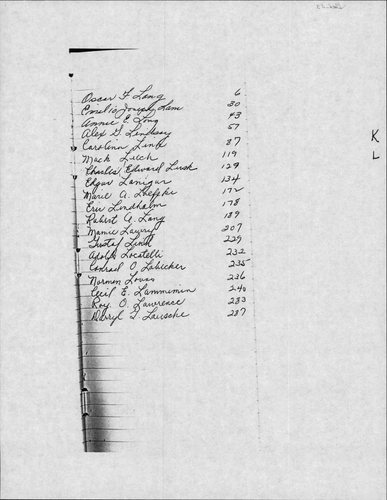 Oscar F Long 6
Emelio Joseph Lami 30
Annie E. Long 43
Alex G. Lindsay 57
Carolinn Link 87
Mack Lulich 119
Charles Edward Lusk 129
Edgar Lanigan 134
Marie A. 172
Eric Lindholm 178
Robert A. Lang 189
Mamie Lavery 207
Gustaf Lind 229
Adolph Locatelli 232
Conrad O. Labecker 235
Normen Lovas 236
Cecil E. Lammimin 240
Roy. O. Lawrence 283
Darryl G. Lausche 287
K
L